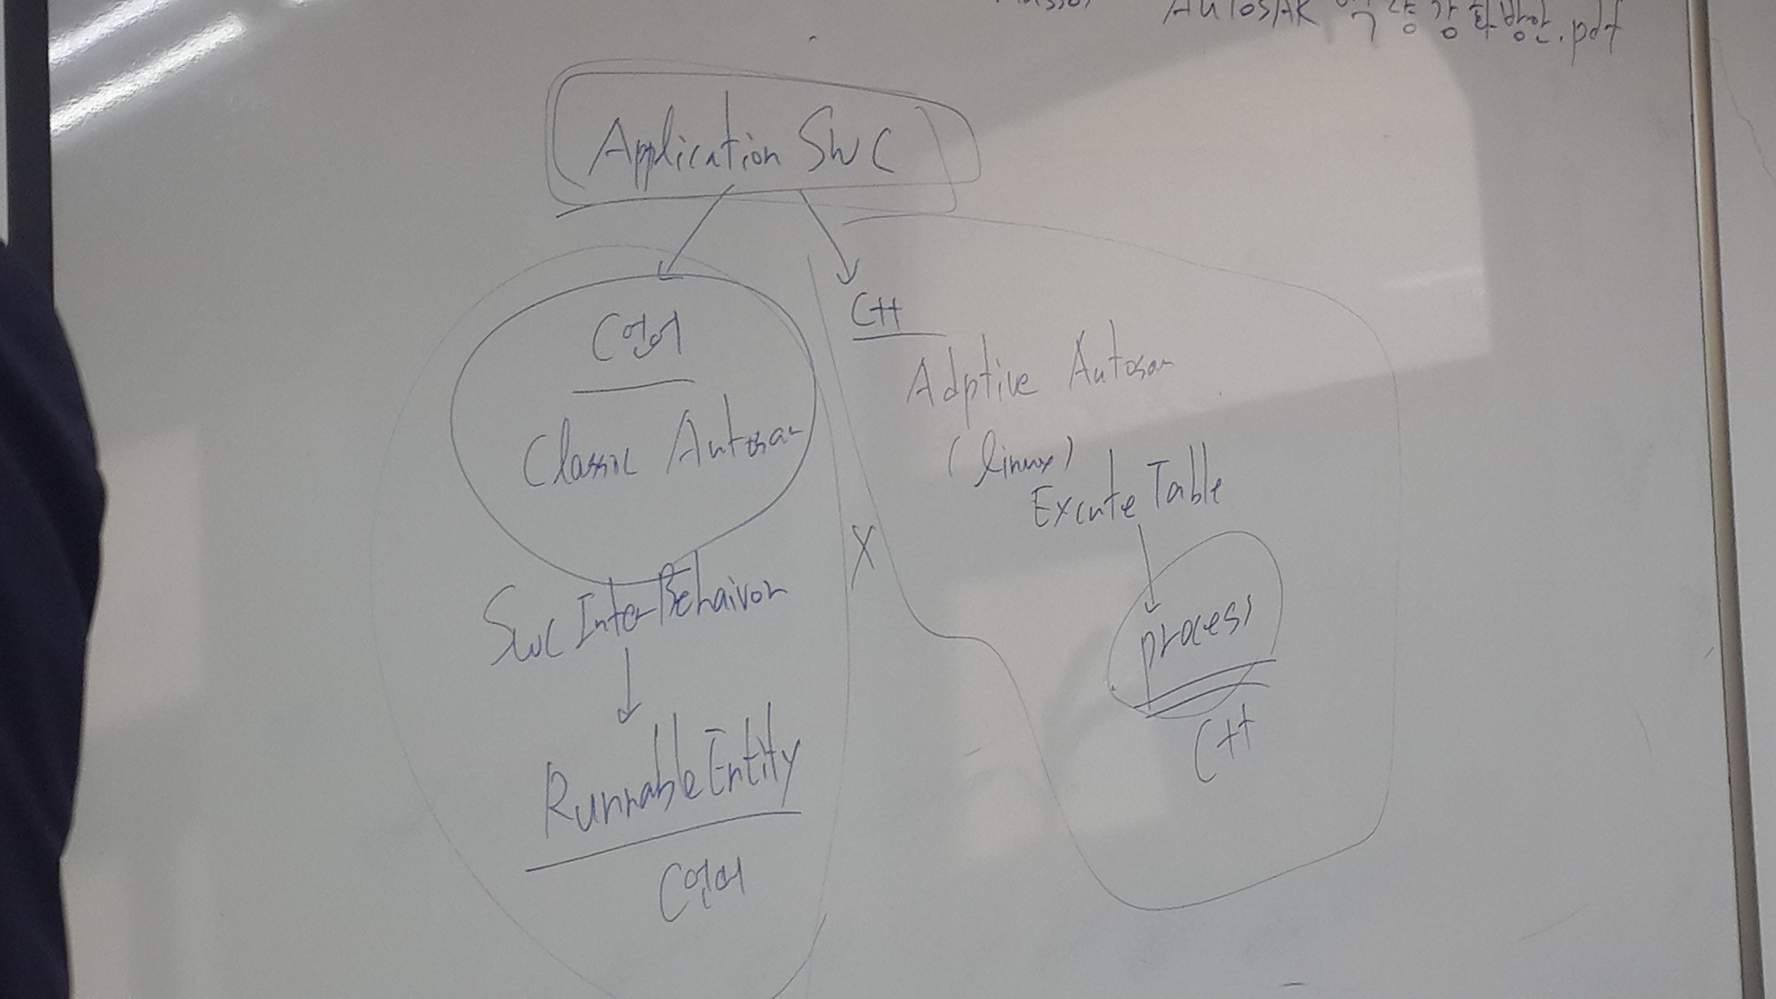 AUTOSAR
.pdf
Application SWC
C언어
Classic Autosar
SWC InterBehaivor
RunnableEntity
C언어
X
C++
Adptive Autosar
(linux)
Excute Table
process
C++